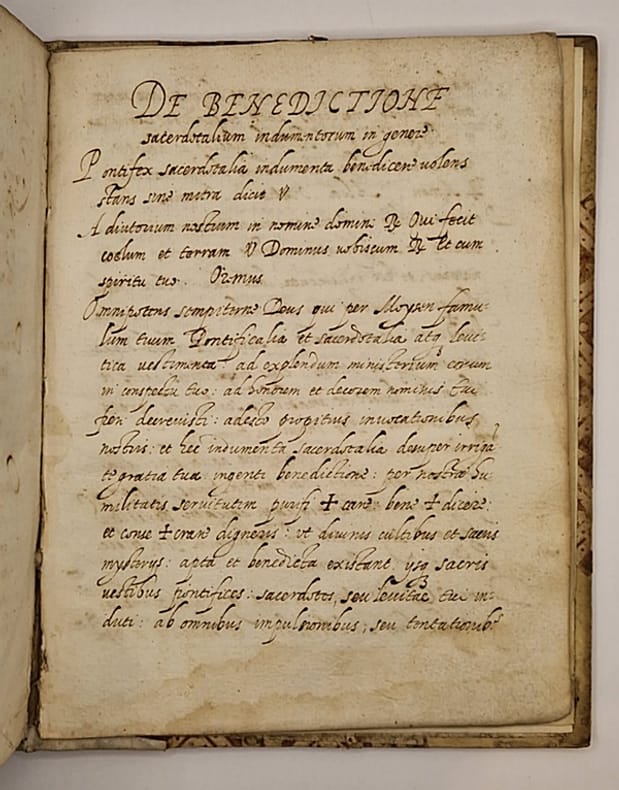 DE BENEDICTIONE
sacerdotalium indumentorum in genere
Pontifex sacerdotalia indumenta benedicere volens
stans sine mitra dicit ℣
Adiutorium nostrum in nomine domini ℟ Qui fecit
coelum et terram ℣ Dominus vobiscum ℟ Et cum
spiritu tuo. Oremus
Omnipotens sempiterne Deus qui per Moysen famu-
lum tuum Pontificalia et sacerdotalia atq levi-
tica vestimenta: ad explendum ministerium eorum
in conspectu tuo: ad honorem et decorem nominis tui
fieri decrevisti: adesto propitius invocationibus
nostris: et hec indumenta sacerdotalia desuper irriga
te gratia tua ingenti benedictione: per nostrae hu-
militatis servitutem purifi ✝ care: bene ✝ dicere:
et conse ✝ crare digneris: ut divinis cultibus et sacris
mysterys: apta et benedicta existant ysq sacris
vestibus pontifices: sacerdotes, seu levitae tui in-
duti: ab omnibus impulsionibus, seu tentationib9